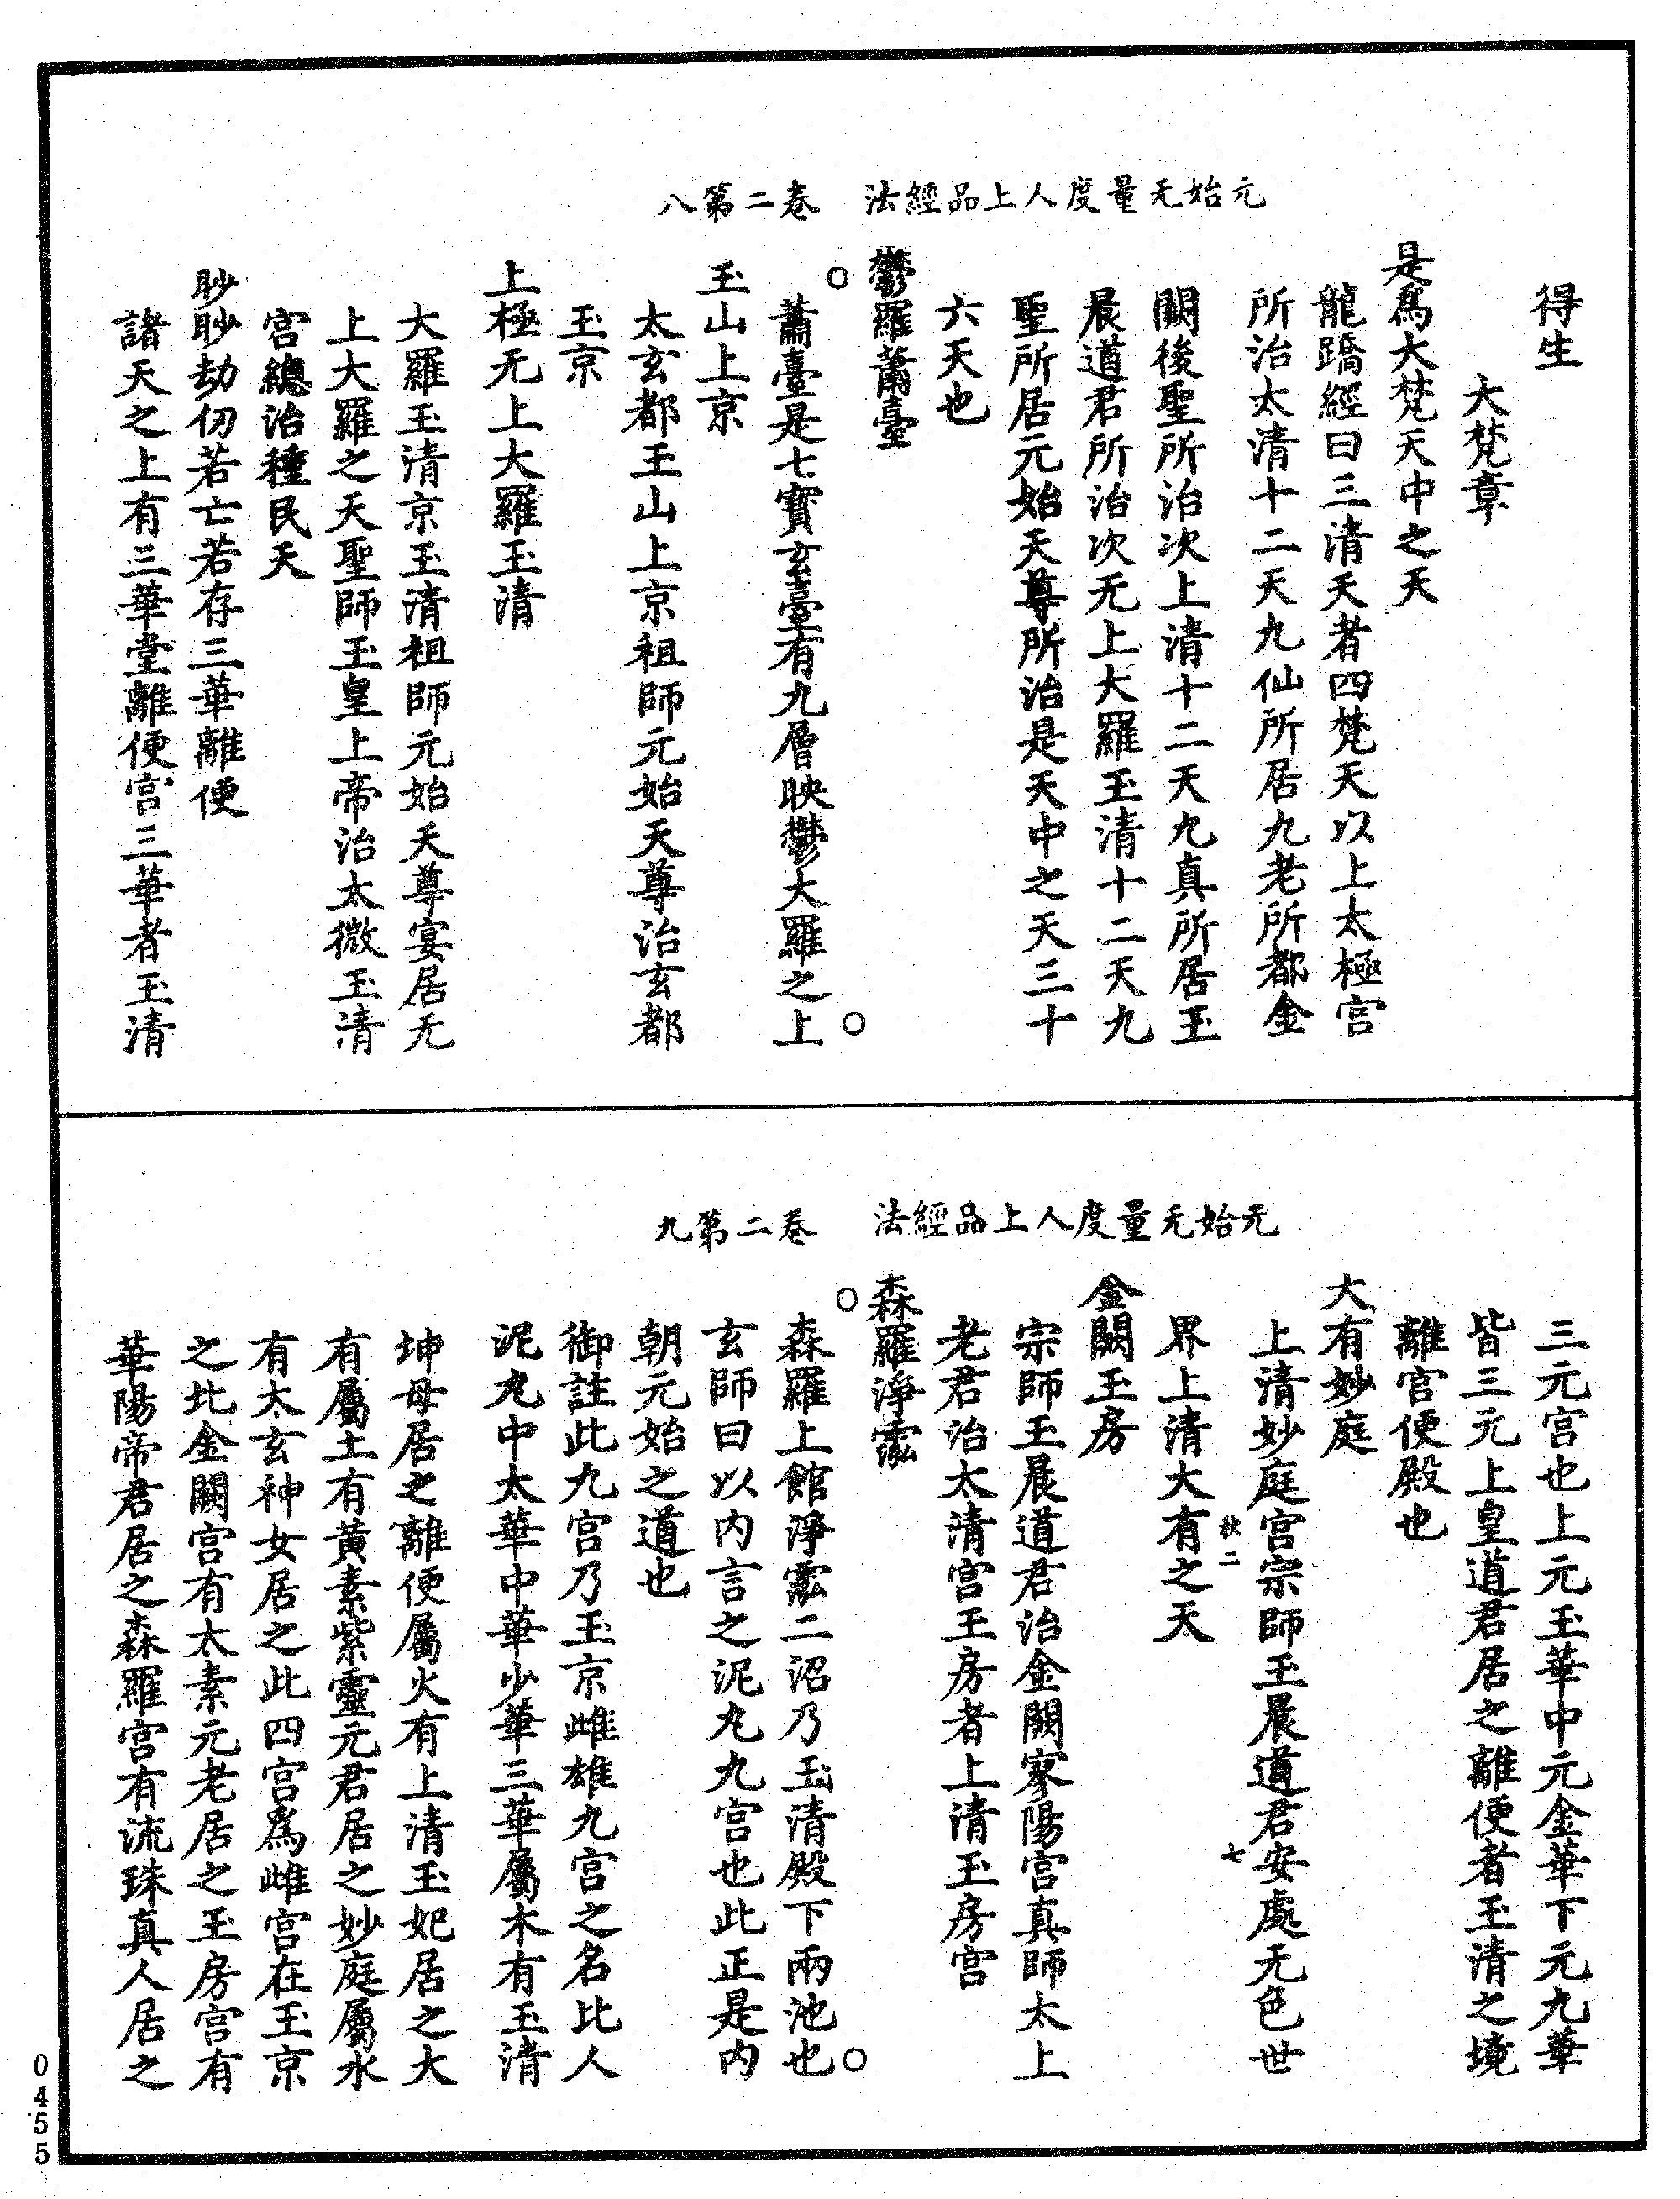 元始无量度人上品經法　卷二第八
得生
大梵章
是爲大梵天中之天
龍蹻經曰三清天者四梵天以上太極宮
所治太清十二天九仙所居九老所都金
闕後聖所治次上清十二天九真所居玉
晨道君所治次无上大羅玉清十二天九
聖所居元始天尊所治是天中之天三十
六天也
鬱羅蕭臺
蕭臺是七寶玄臺有九層映鬱大羅之上
玉山上京
太玄都玉山上京祖師元始天尊治玄都
玉京
上極无上大羅玉清
大羅玉清京玉清祖師元始天尊宴居无
上大羅之天聖師玉皇上帝治太微玉清
宮總治種民天
眇眇劫仞若亡若存三華離便
諸天之上有三華堂離便宮三華者玉清
元始无量度人上品經法　卷二第九
三元宮也上元玉華中元金華下元九華
皆三元上皇道君居之離便者玉清之境
離宮便殿也
大有妙庭
上清妙庭宮宗師玉晨道君安處无色世
界上清大有之天
金闕玉房
宗師玉晨道君治金闕寥陽宮真師太上
老君治太清宮玉房者上清玉房宮
森羅淨泓
森羅上館淨泓二沼乃玉清殿下兩池也
玄師曰以内言之泥丸九宮也此正是内
朝元始之道也
御註此九宮乃玉京雌雄九宮之名比人
泥丸中太華中華少華三華屬木有玉清
坤母居之離便屬火有上清玉妃居之大
有屬土有黃素紫靈元君居之妙庭屬水
有太玄神女居之此四宮爲雌宮在玉京
之北金闕宮有太素元老居之玉房宮有
華陽帝君居之森羅宮有流珠真人居之
秋二　七
0455